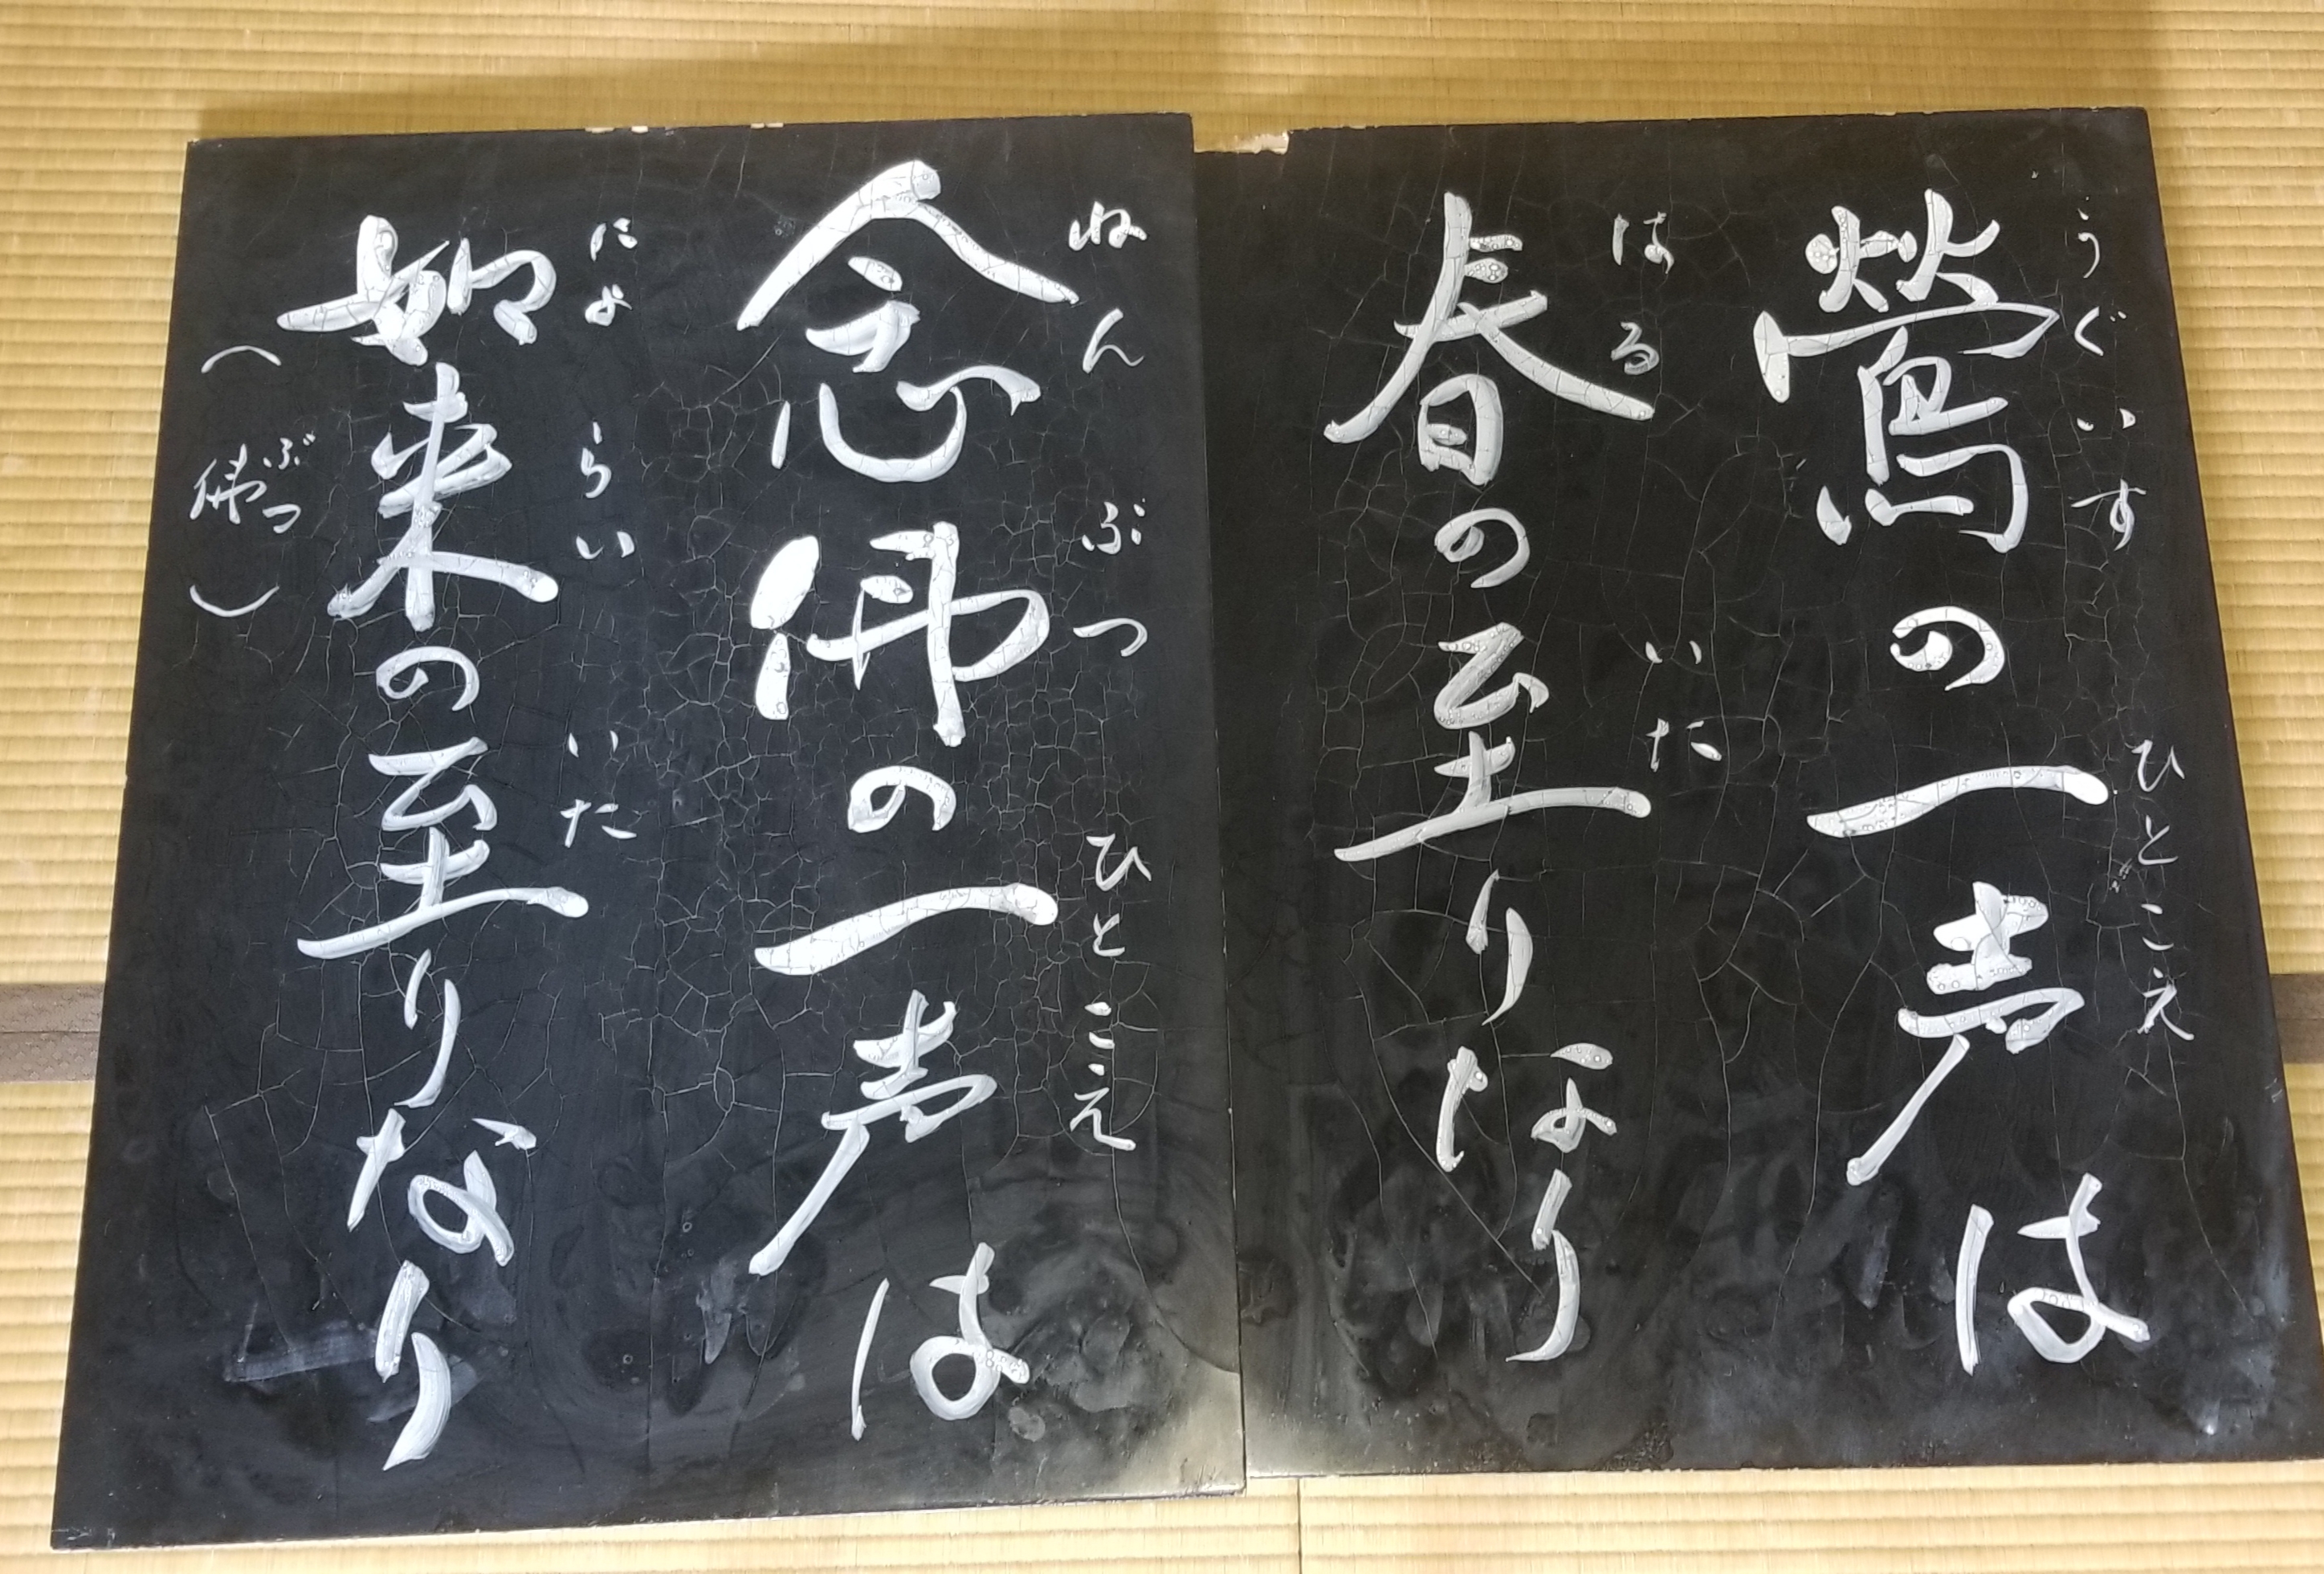 うぐいす ひとこえ
鶯の一声は
はる いた
春の至りなり
ねんぶつ ひとこえ
念佛の一声は
にょらい いた
如来の至りなり
ぶつ
(佛)